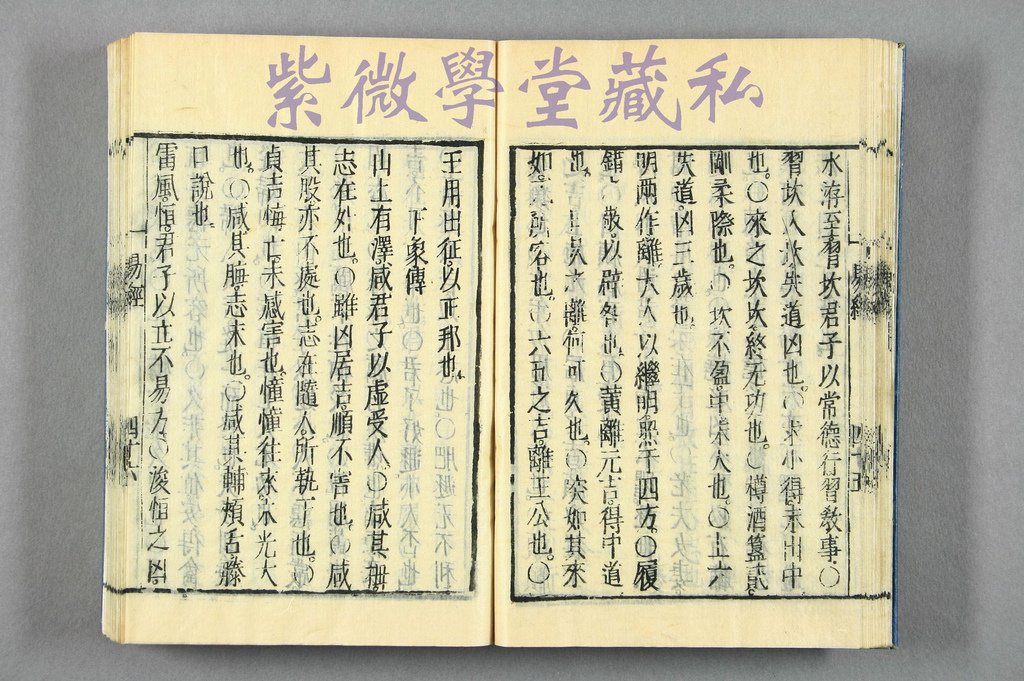 紫微學堂藏私
易經
四十五
水洊至習坎君子以常德行習敎事○
習坎入坎失道凶也○求小得未出中
也○來之坎坎終无功也○樽酒簋貳
剛柔際也○坎不盈中未大也○上六
失道凶三歲也
明兩作離大人以繼明照于四方○履
錯 敬以辟咎也○黃離元吉得中道
也○日昃之離何可久也○突如其來
如无所容也○六五之吉離王公也○
王用出征以正邦也
下象傳
山上有澤咸君子以虛受人○咸其拇
志在外也○雖凶居吉順不害也○咸
其股亦不處也志在隨人所執下也○
貞吉悔亡未感害也憧憧往來未光大
也○咸其脢志末也○咸其輔頰舌滕
口說也
雷風恒君子以立不易方○浚恒之凶
易經
四十六